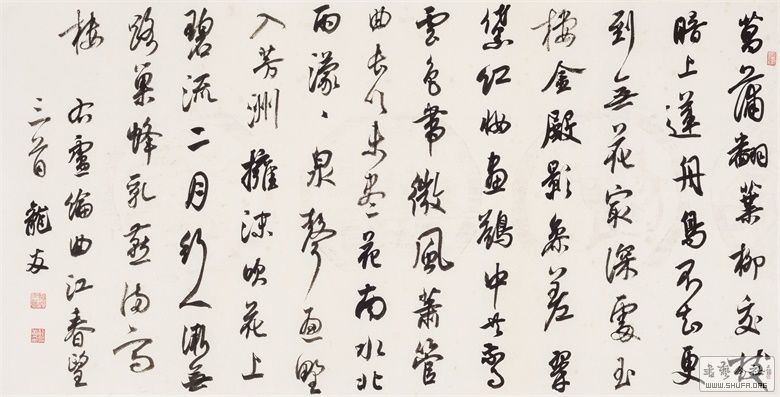 菖蒲翻葉柳交枝
暗上蓮舟鳥不知更
到無花最深處玉
樓金殿影參差翠
黛紅妝畫鷁中共驚
雲色帶微風蕭管
曲長吹未盡花南水北
雨濛、泉聲遍野
入芳洲擁沫吹花上
碧流二月行人漸無
路巢蜂乳燕滿高
樓
右盧綸曲江春望
三首 龍友
WWW.SHUFA.ORG